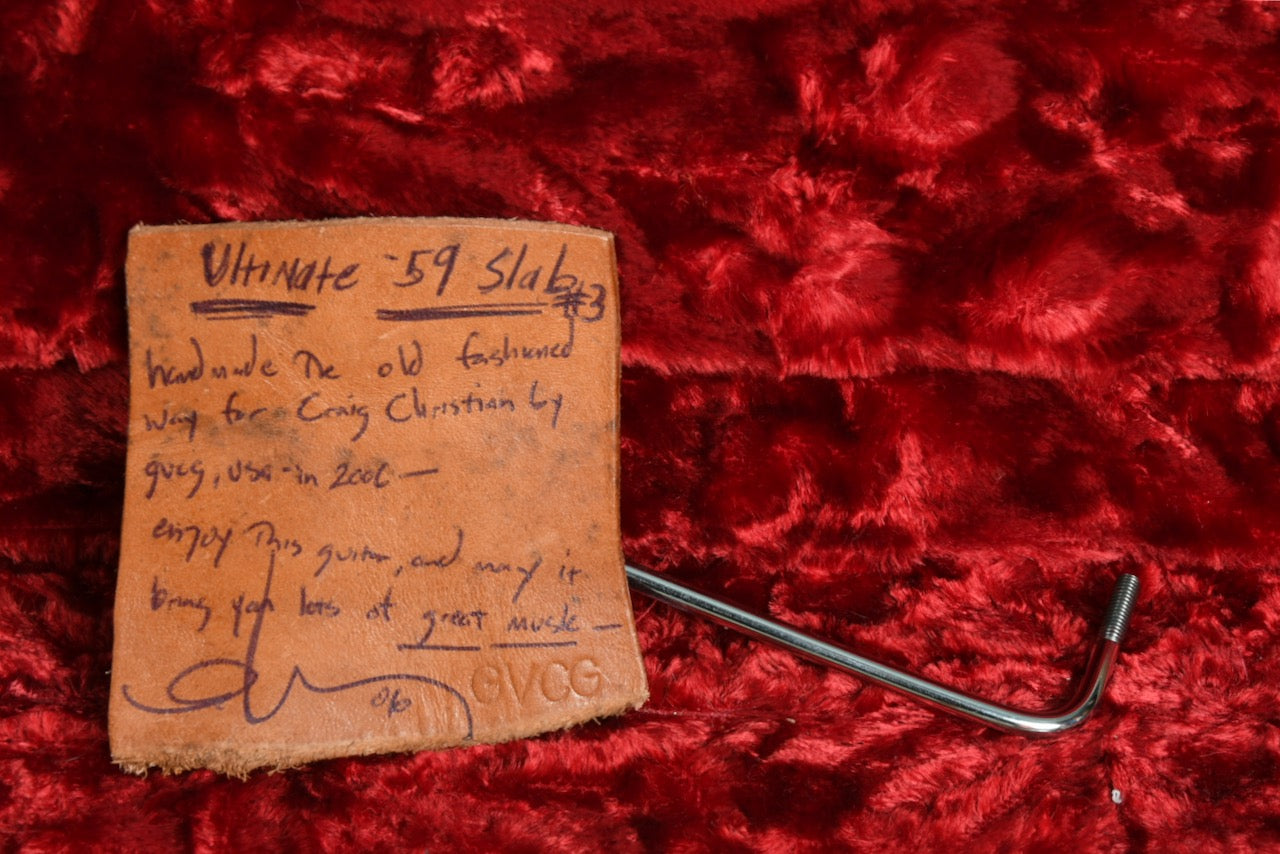 Ultimate '59 Slab
#3
handmade The old fashioned
way for Craig Christian by
gvcg, USA - in 2006 —
enjoy This guitar, and may it
bring you lots of great music —
06
GVCG